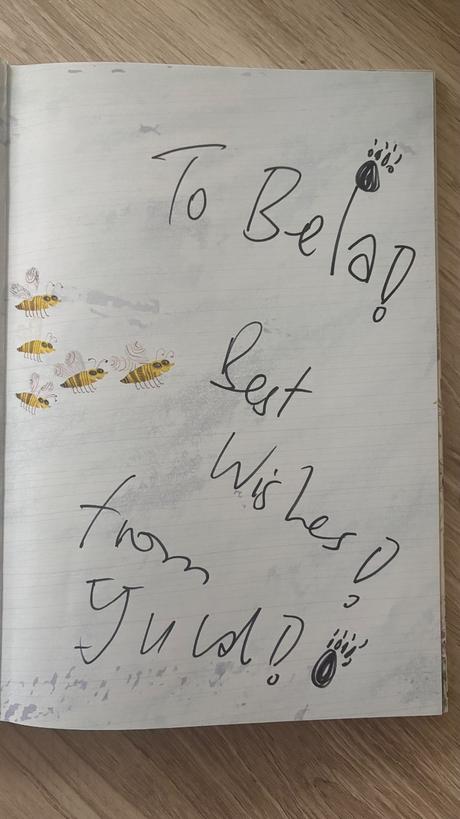 To Bela!
Best
Wishes!
from